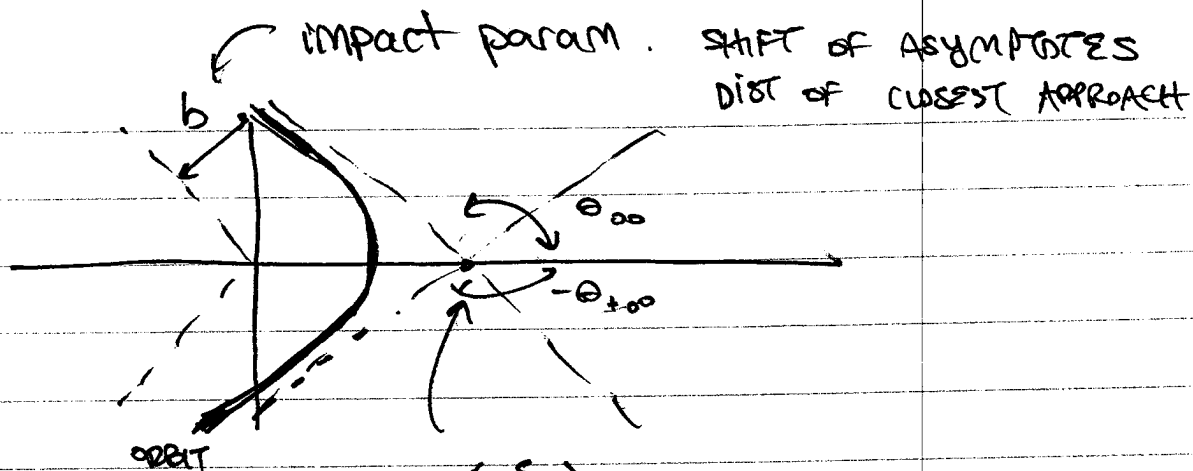 impact param. SHIFT OF ASYMPTOTES
DIST OF CLOSEST APPROACH
b
θ∞
-θ±∞
ORBIT